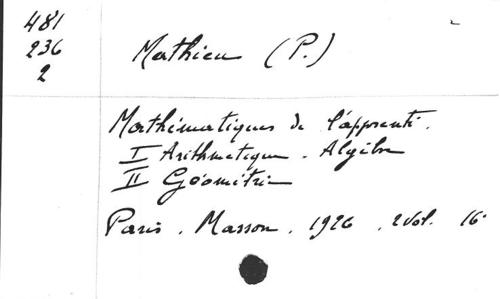 481
236
2
Mathieu (P.)
Mathématiques de l'apprenti.
I Arithmetique - Algèbre
II Géométrie
Paris. Masson. 1926. 2 vol. 16°